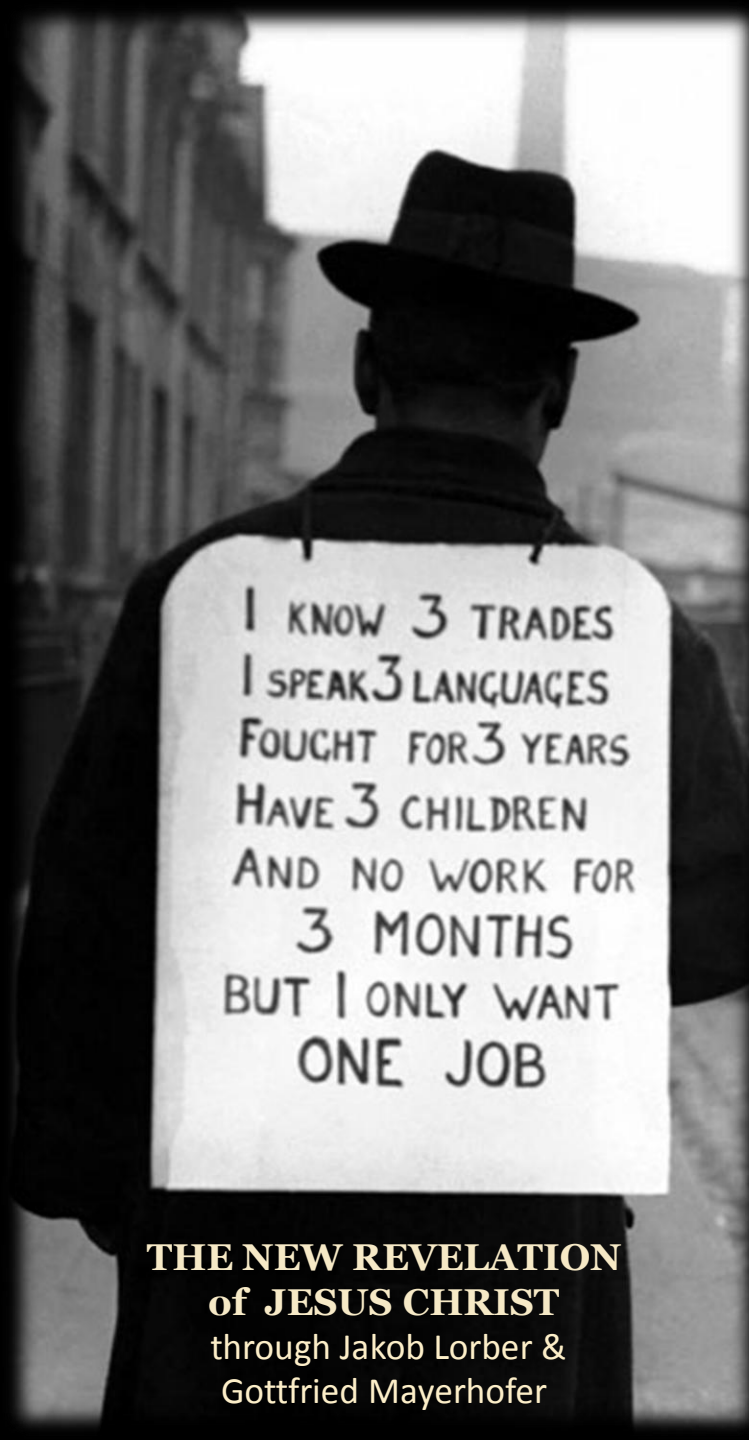 I KNOW 3 TRADES
I SPEAK 3 LANGUAGES
FOUGHT FOR 3 YEARS
HAVE 3 CHILDREN
AND NO WORK FOR
3 MONTHS
BUT I ONLY WANT
ONE JOB
THE NEW REVELATION
of JESUS CHRIST
through Jakob Lorber &
Gottfried Mayerhofer